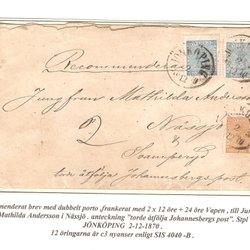 Recommenderas
JÖNKÖPING
Jungfrun Mathilda Andersson
2
Nässjö
torde åtfölja Johannesbergs post
menderat brev med dubbelt porto ,frankerat med 2 x 12 öre + 24 öre Vapen , till Ju
Mathilda Andersson i Nässjö . anteckning "torde åtfölja Johannesbergs post". Stpl
JÖNKÖPING 2-12-1870 .
12 öringarna är c3 nyanser enligt SIS 4040 -B .